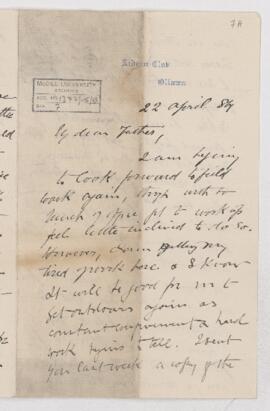 7A
Rideau Club
Ottawa
McGILL UNIVERSITY
ARCHIVES
ACC. NO.
REF. 7
22 April 84
My dear Father,
I am trying
to look forward to field
work again, though with so
much of office yet to work up
feel little inclined to do so.
However, I am getting very
tired of work here & I know
it will be good for me to
get outdoors again as
constant confinement & hard
work begins to tell. I sent
you last week a copy of the